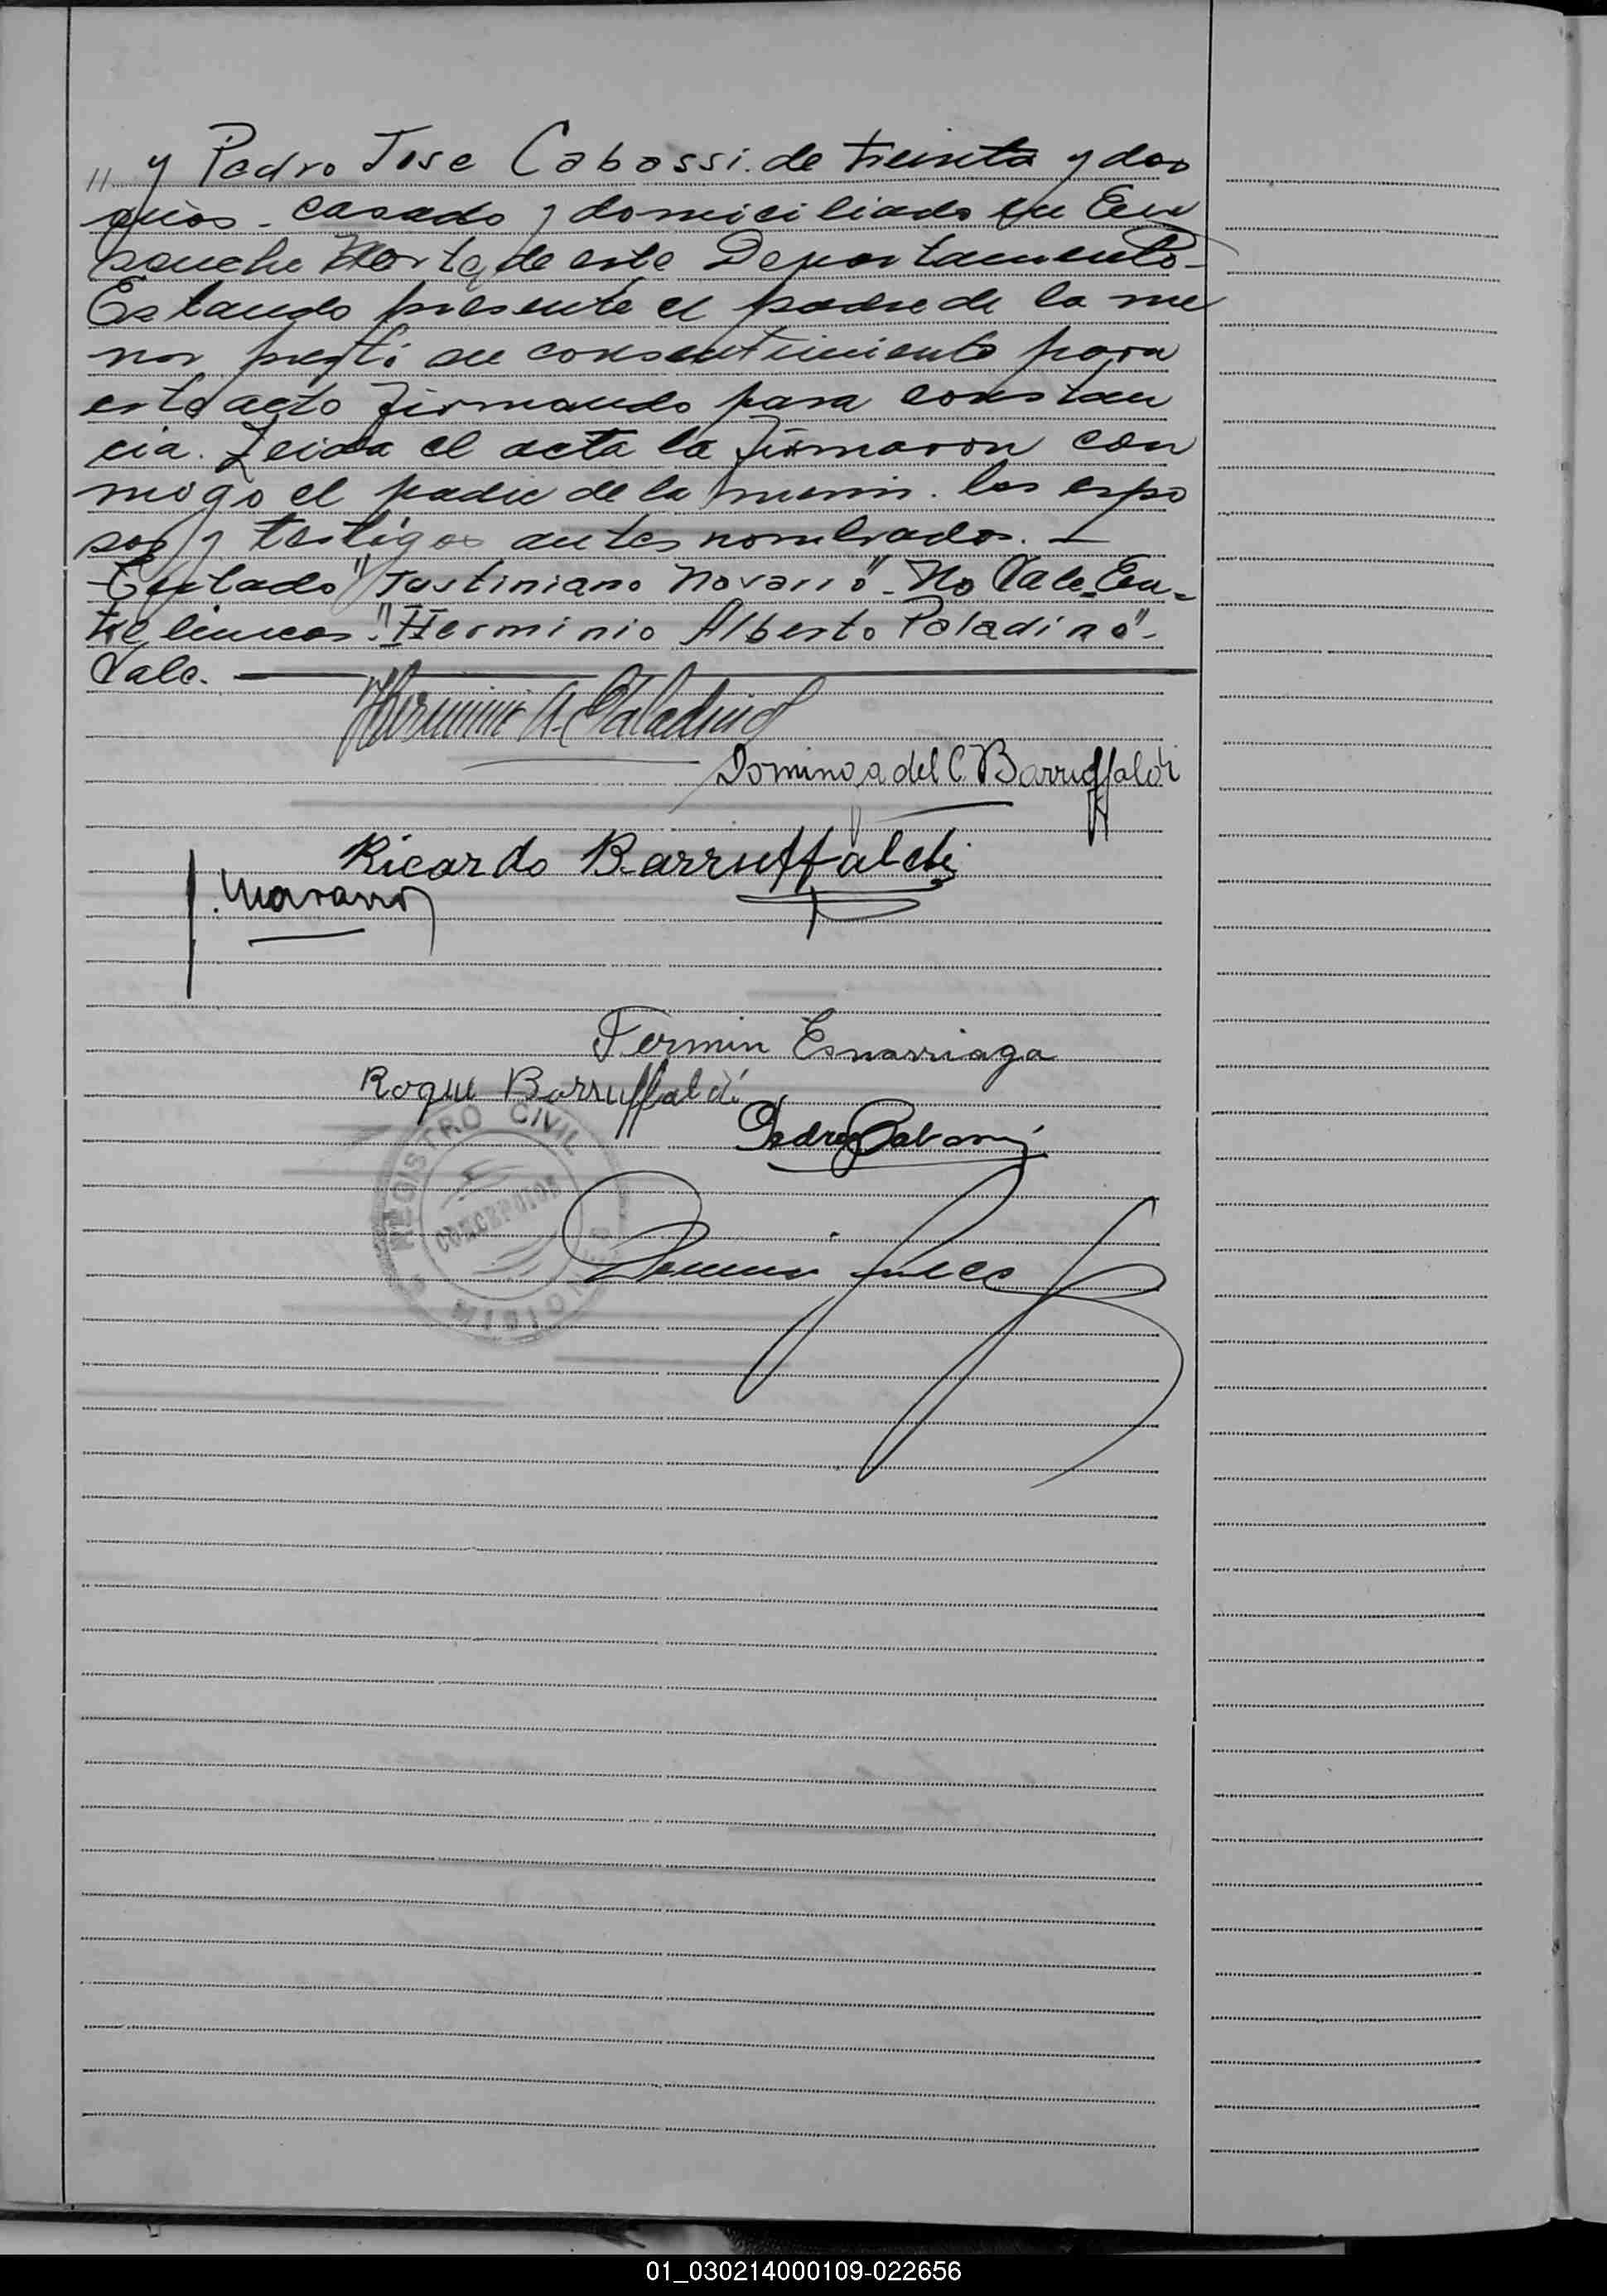 " y Pedro Jose Cabassi. de treinta y dos
años - casado y domiciliado en En
sanche Norte, de este Departamento -
Estando presente el padre de la me
nor prestó su consentimiento para
este acto firmando para constan
cia. Leida el acta la firmaron con
migo el padre de la menor. los espo
sos y testigos antes nombrados. -
Testado "Justiniano Novarro". No Vale. En-
tre lineas. "Herminio Alberto Paladino" -
Vale. -
Herminio A. Paladino
Dominga del C. Barruffaldi
Ricardo Barruffaldi
Fermin Esnarriaga
Roque Barruffaldi
Pedro Cabassi
REGISTRO CIVIL
CONCEPCION
MISIONES
01_030214000109-022656